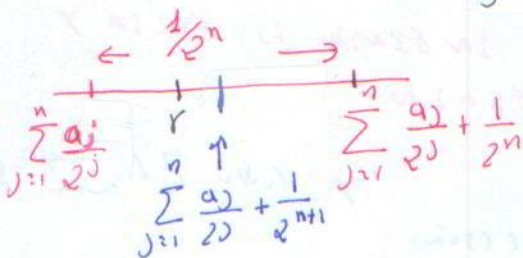 ← 1/2^n →
r
∑_{j=1}^{n} a_j/2^j
∑_{j=1}^{n} a_j/2^j + 1/2^n
↑
∑_{j=1}^{n} a_j/2^j + 1/2^{n+1}